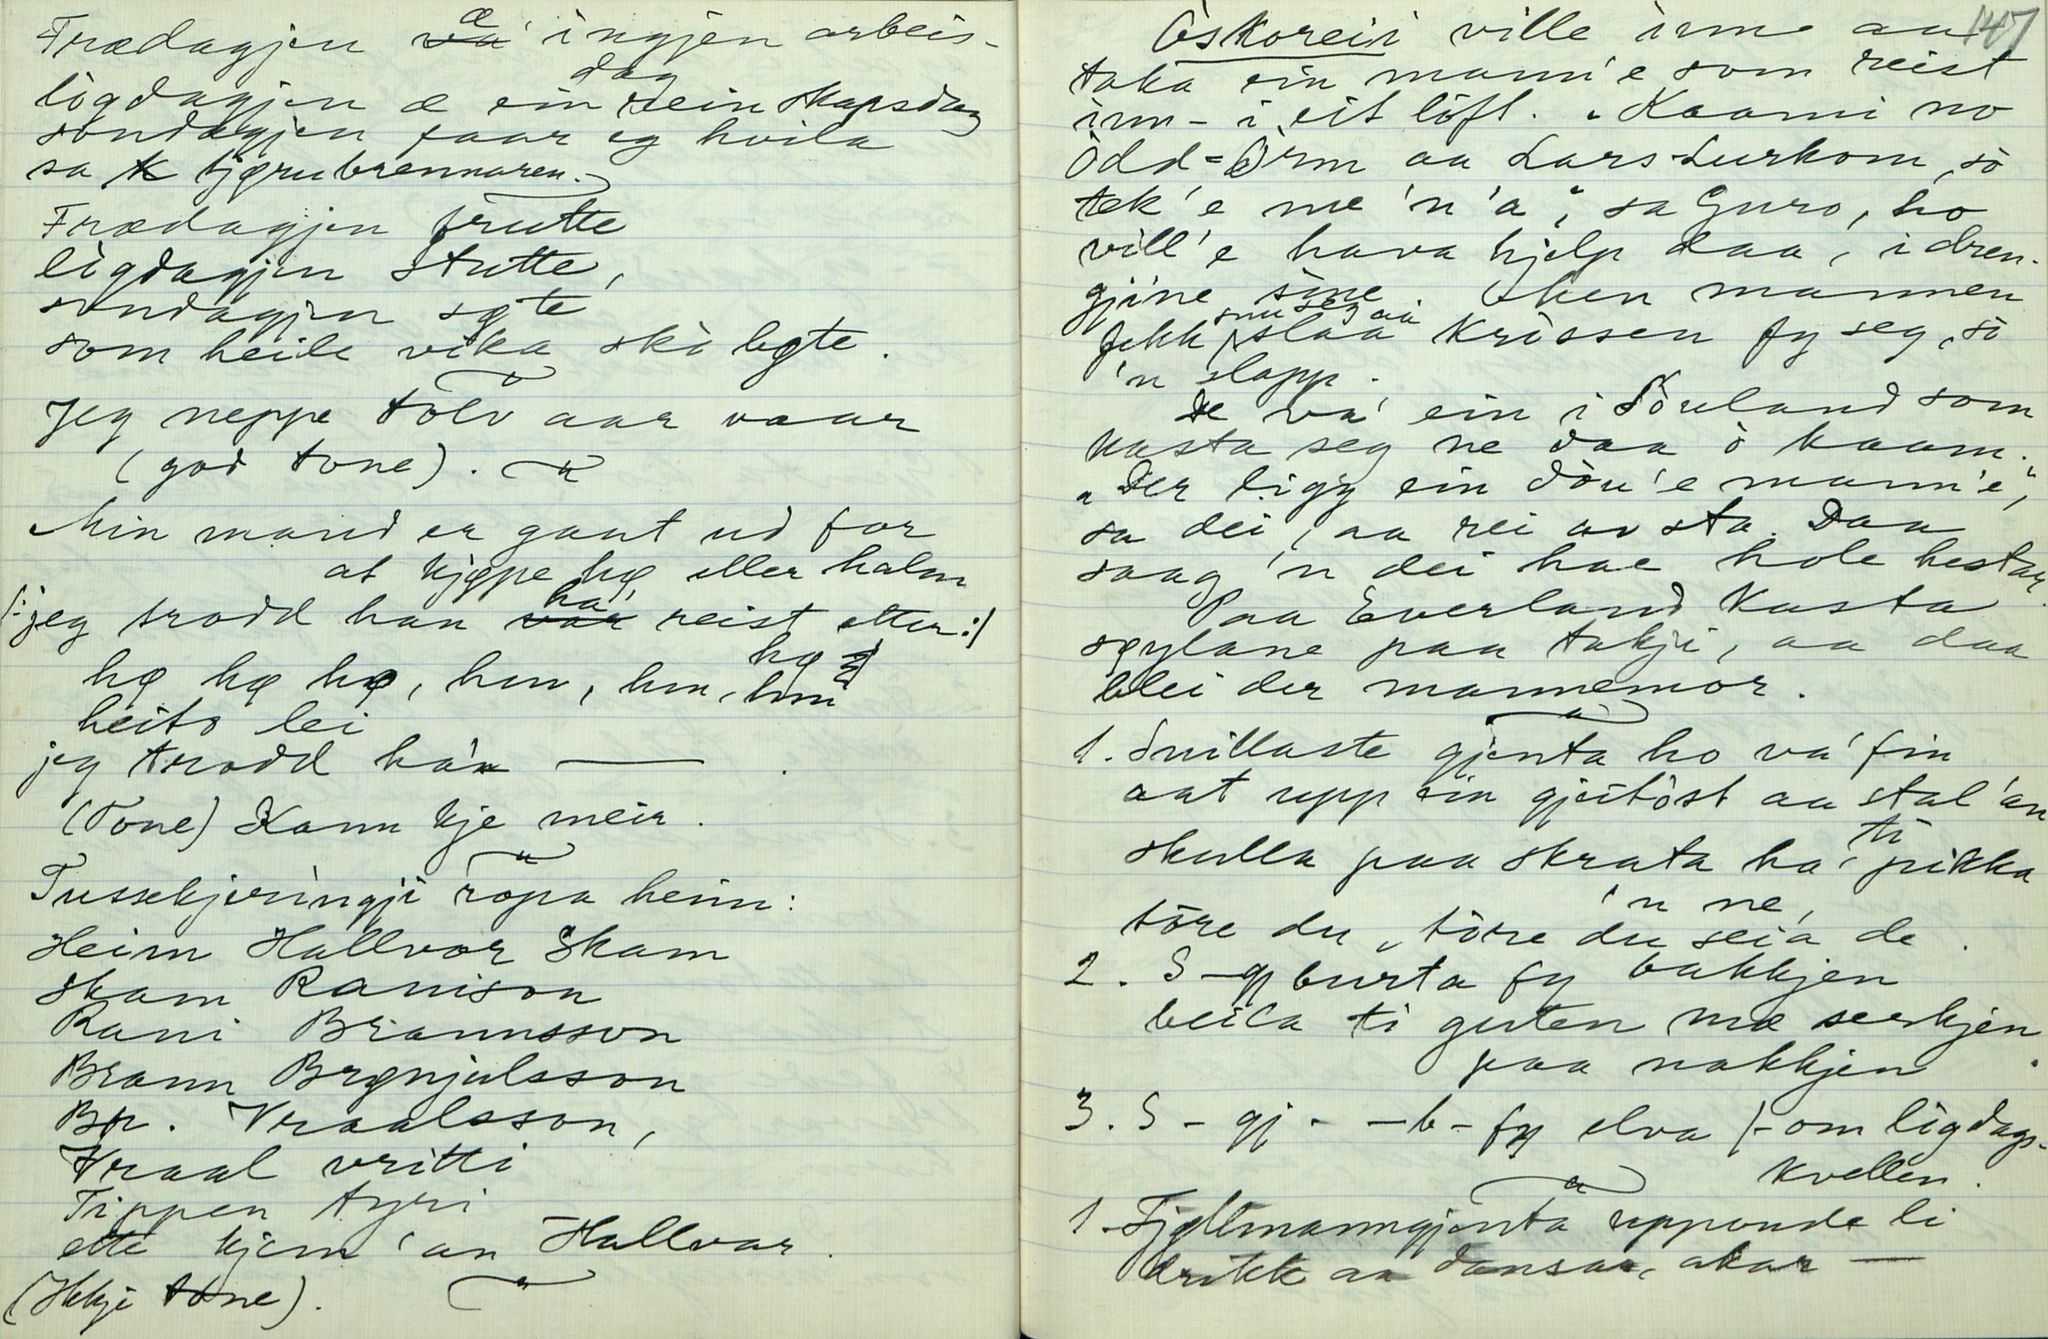 Frædagjen æ ingjen arbeis-
lögdagjen æ ein rein skapsdag
dag
söndagjen faar eg hvila
sa tjørubrennaren.
Frædagjen frutte
lögdagjen stutte,
söndagjen søte
som heile vika ski bøte.
Jeg neppe tolv aar vaar
(god tone).
Min mand er gaat ud for
at kjøpe hø eller halm
/: jeg trodd han var reist etter :/
ha'
hø hø hø, hm, hm, hm
hø
heito lei
jeg trodd ha'n —
(Tone) Kann kje meir.
Tussekjeringji ropa heim:
Heim Hallvor Skam
Skam Ranison
Rani Brannsson
Brann Brønjulsson
Br. Vraalsson,
Vraal vritti
Tippen tyri
ette kjem 'an Hallvar.
(Ikkje tone).
147
Òskoreii ville inn aa
taka ein mann'e som reist
inn i eit löft. "Kaami no
Òdd-Òrm aa Lars-Lurkom, so
tek'e me 'n'a", sa Guro, ho
vill'e hava hjelp daa, i dren-
gjine sine. Men mannen
fekk snu seg aa slaa krossen fy seg, so
'n slapp.
De va' ein i Fòuland som
kasta seg ne daa ò kaam.
"Der ligg ein dòu'e mann'e",
sa dei, aa rei av sta. Daa
saag 'n dei hae hole hestar.
Paa Everland kasta
søylane paa takji, aa daa
blei der mannemor.
1. Snillaste gjenta ho va' fin
aat upp ein gjeitòst aa stal 'an
skulla paa skrata ha' ti pikka
'n ne,
töre du, töre du seia de.
2. S – gj burta fy bakkjen
beila ti guten mæ serkjen
paa nakkjen.
3. S – gj – – b – fy elva /– om lögdags-
kvellen.
1. Fjøllmanngjenta uppunde li
drikk aa dansar, akar —